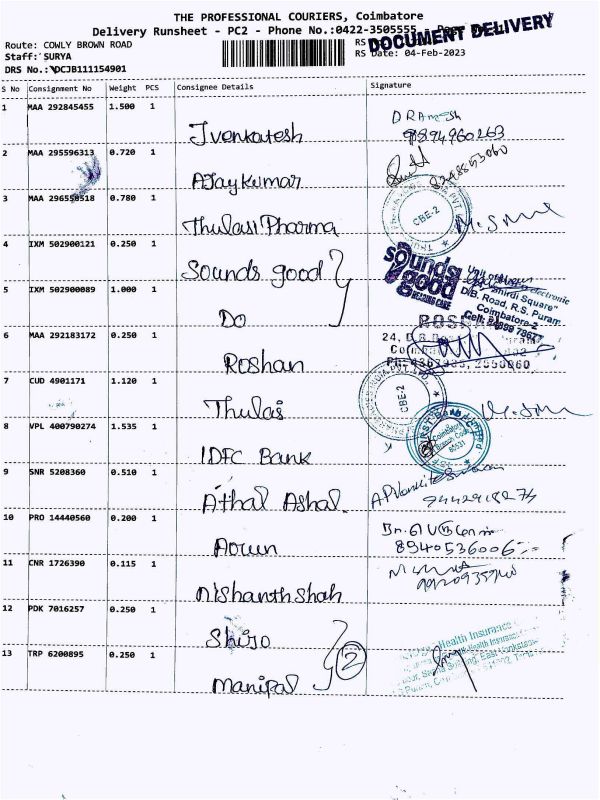 THE PROFESSIONAL COURIERS, Coimbatore
Delivery Runsheet - PC2 - Phone No.:0422-3505555
DOCUMENT DELIVERY
Route: COWLY BROWN ROAD
Staff: SURYA
RS Date: 04-Feb-2023
DRS No.: DCJB111154901
S No Consignment No Weight PCS Consignee Details Signature
1 MAA 292845455 1.500 1 J venkatesh
2 MAA 295596313 0.720 1 AJaykumar
3 MAA 296558518 0.780 1 Thulasi Pharma
CBE-2
4 IXM 502900121 0.250 1 Sounds good
sounds good
HEARING CARE
D.B. Road, R.S. Puram
Coimbatore-2
5 IXM 502900089 1.000 1 Do
6 MAA 292183172 0.250 1 Roshan
7 CUD 4901171 1.120 1 Thulasi
CBE-2
8 VPL 400790274 1.535 1 IDFC Bank
9 SNR 5208360 0.510 1 Athal Ashal.
10 PRO 14440560 0.200 1 Aorun
8940536006
11 CNR 1726390 0.115 1 Nishanth Shah
12 PDK 7016257 0.250 1
Health Insurance
13 TRP 6200895 0.250 1 manipal
2